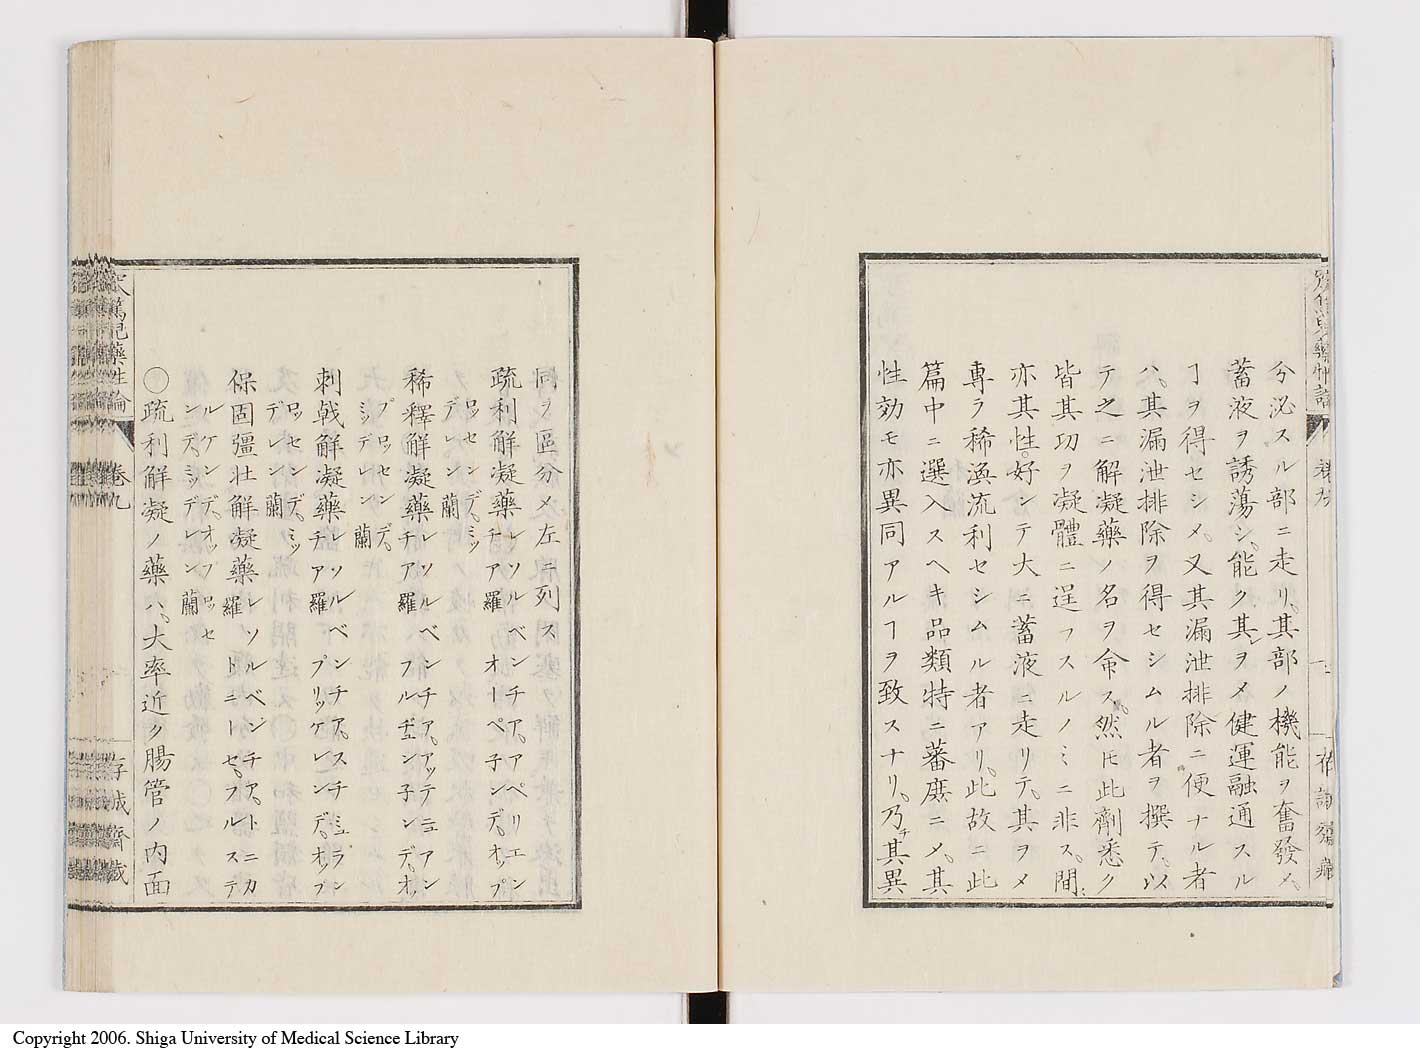 分泌スル部ニ走リ。其部ノ機能ヲ奮發メ。
蓄液ヲ誘蕩シ。能ク其ヲメ健運融通スル
ヿヲ得セシメ。又其漏泄排除ニ便ナル者
ハ。其漏泄排除ヲ得セシムル者ヲ撰テ。以
テ之ニ解凝藥ノ名ヲ命ス。然𪜈此劑悉ク
皆其功ヲ凝體ニ逞フスルノミニ非ス。間
亦其性。好シテ大ニ蓄液ニ走リテ。其ヲメ
專ラ稀渙流利セシムル者アリ。此故ニ此
篇中ニ選入スヘキ品類特ニ蕃庶ニメ。其
性効モ亦異同アルヿヲ致スナリ。乃チ其異
同ヲ區分メ左ニ列ス
疏利解凝藥レソルベンチア。アペリエンチア羅 オーペ子ンデ。オップロッセンデ。ミッデレン蘭
稀釋解凝藥レソルベンチア。アッテニュアンチア羅 フルヂュン子ンデ。オップロッセンデ。ミッデレン蘭
刺戟解凝藥レソルベンチア。スチミュランチア羅 プリッケレンデ。オップロッセンデ。ミッデレン蘭
保固彊壯解凝藥レソルベンチア。トニカ羅 トニーセ。フルステルケンデ。オップロッセンデ。ミッデレン蘭
○疏利解凝ノ藥ハ。大率近ク腸管ノ内面
窊篤兒藥性論
卷九
存誠齋藏